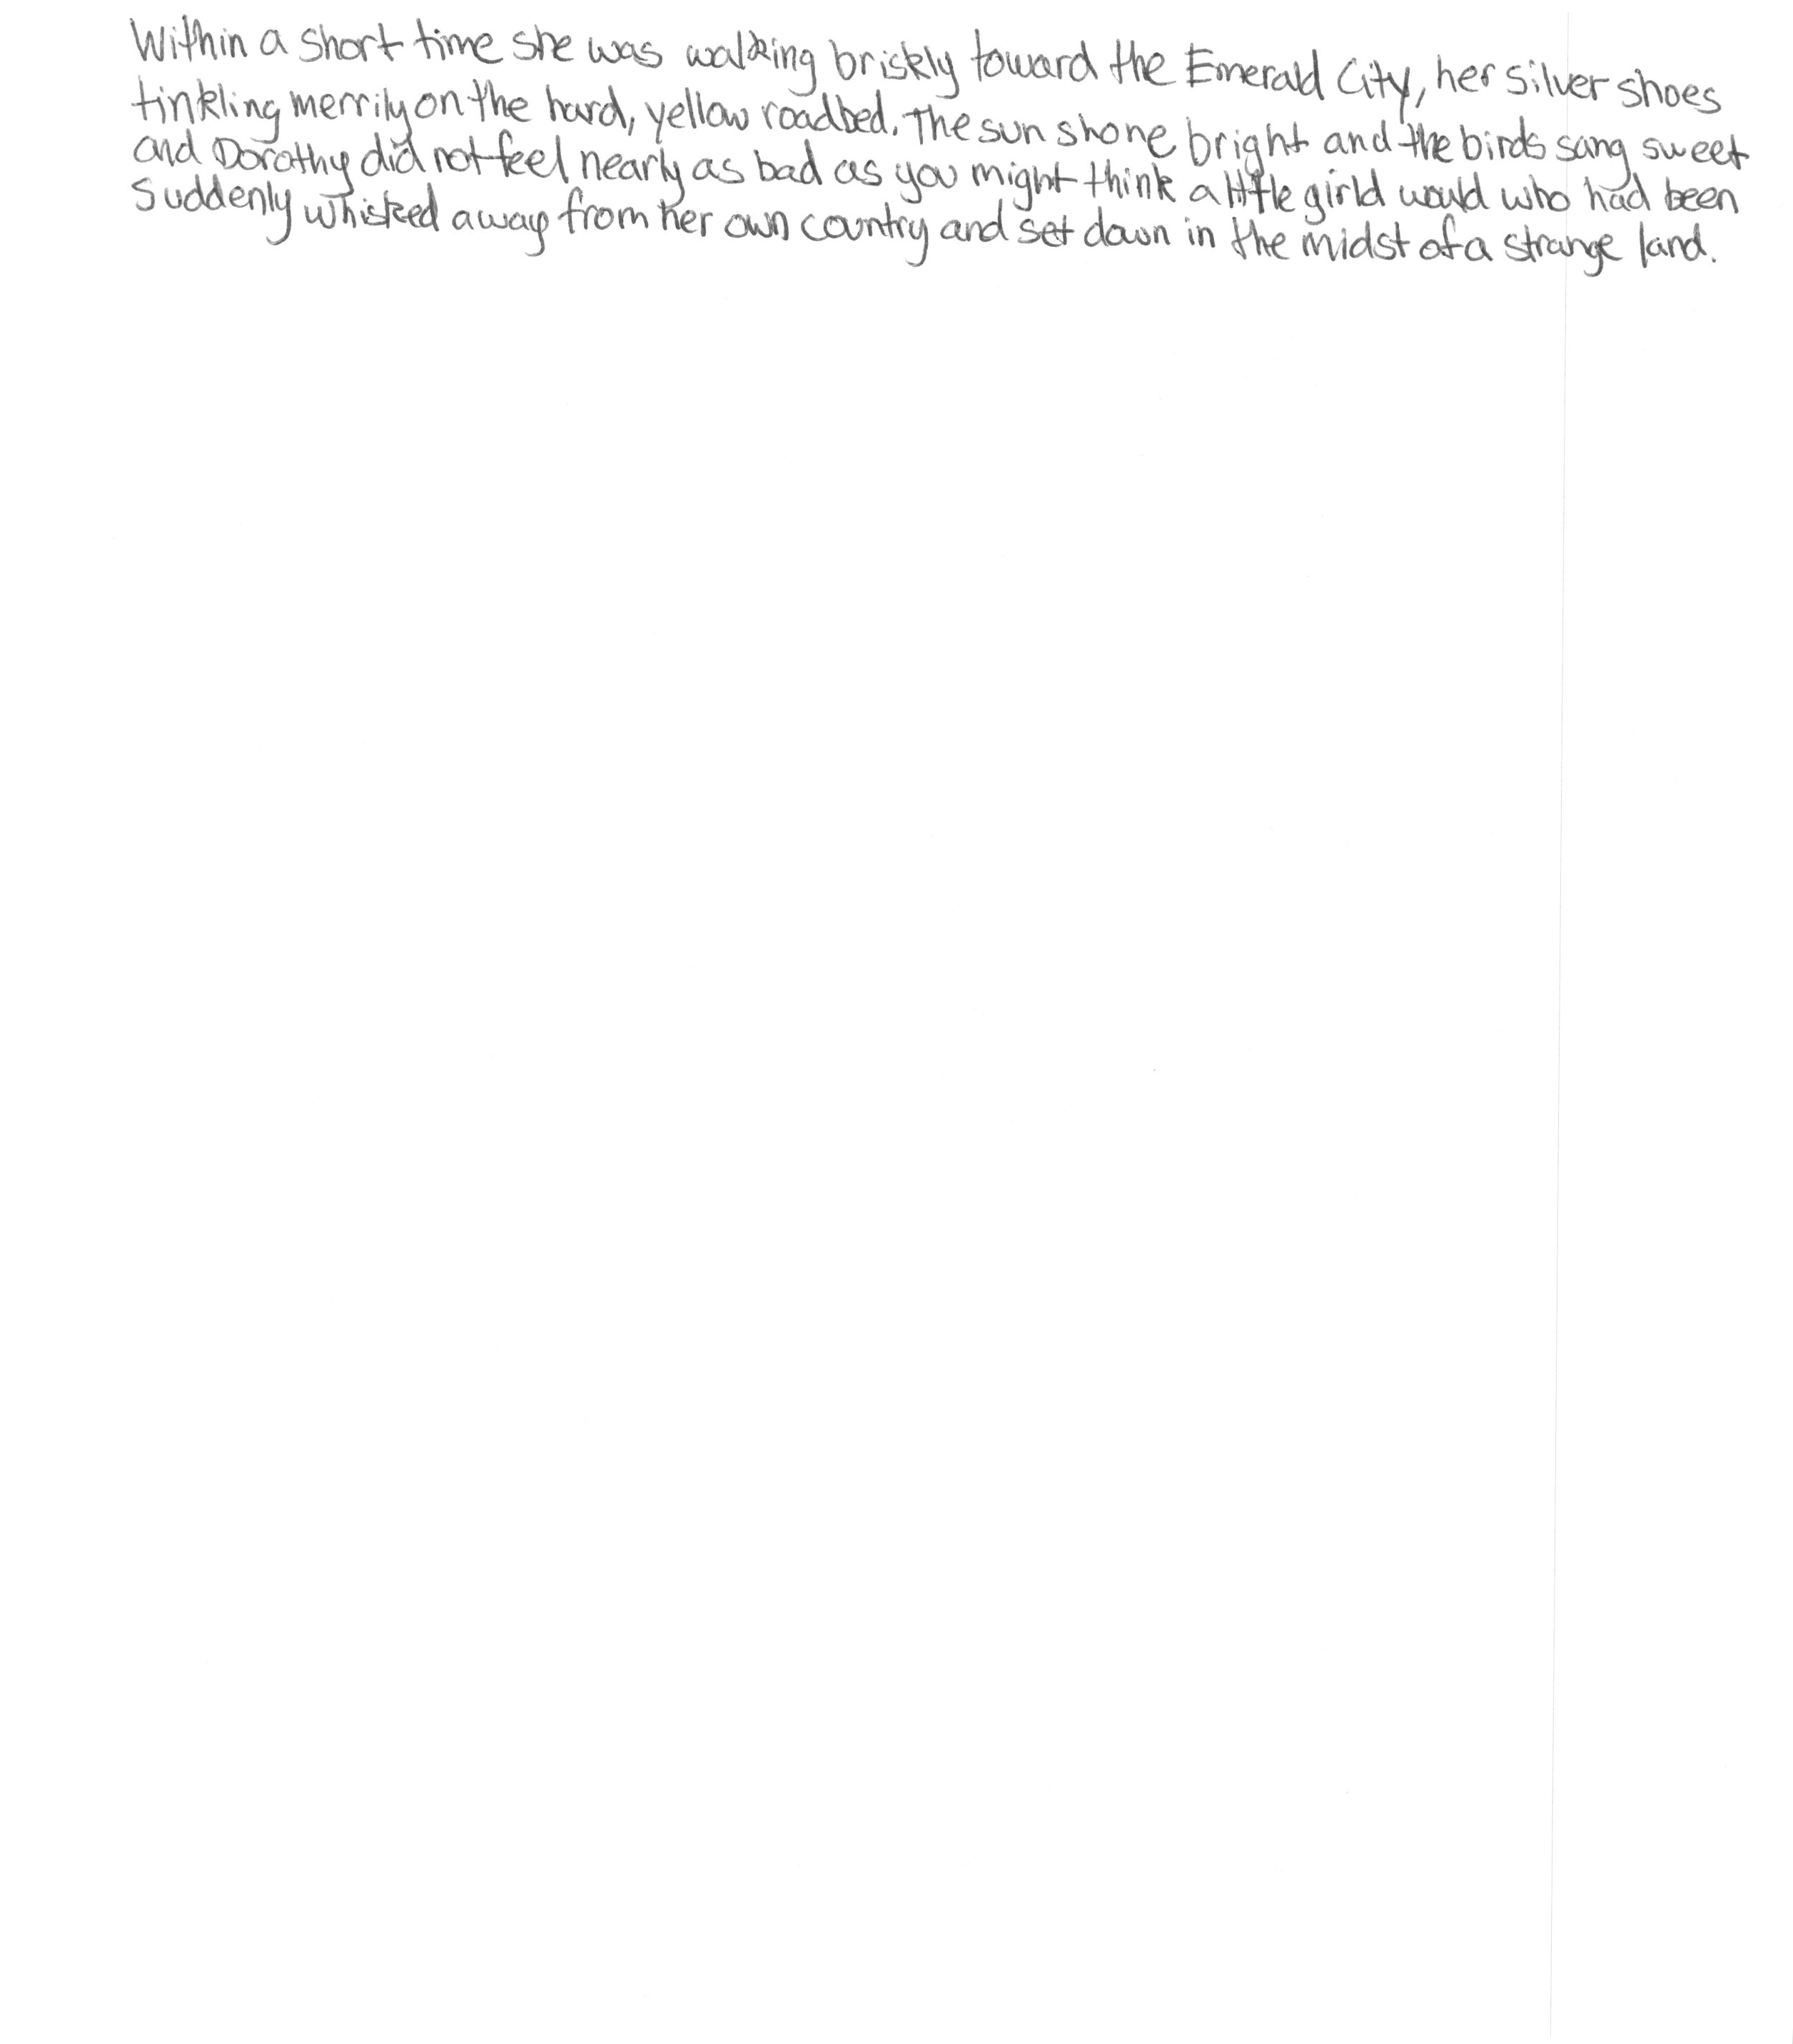 Within a short time she was walking briskly toward the Emerald City, her silver shoes
tinkling merrily on the hard, yellow roadbed. The sun shone bright and the birds sang sweet
and Dorothy did not feel nearly as bad as you might think a little girld would who had been
suddenly whisked away from her own country and set down in the midst of a strange land.